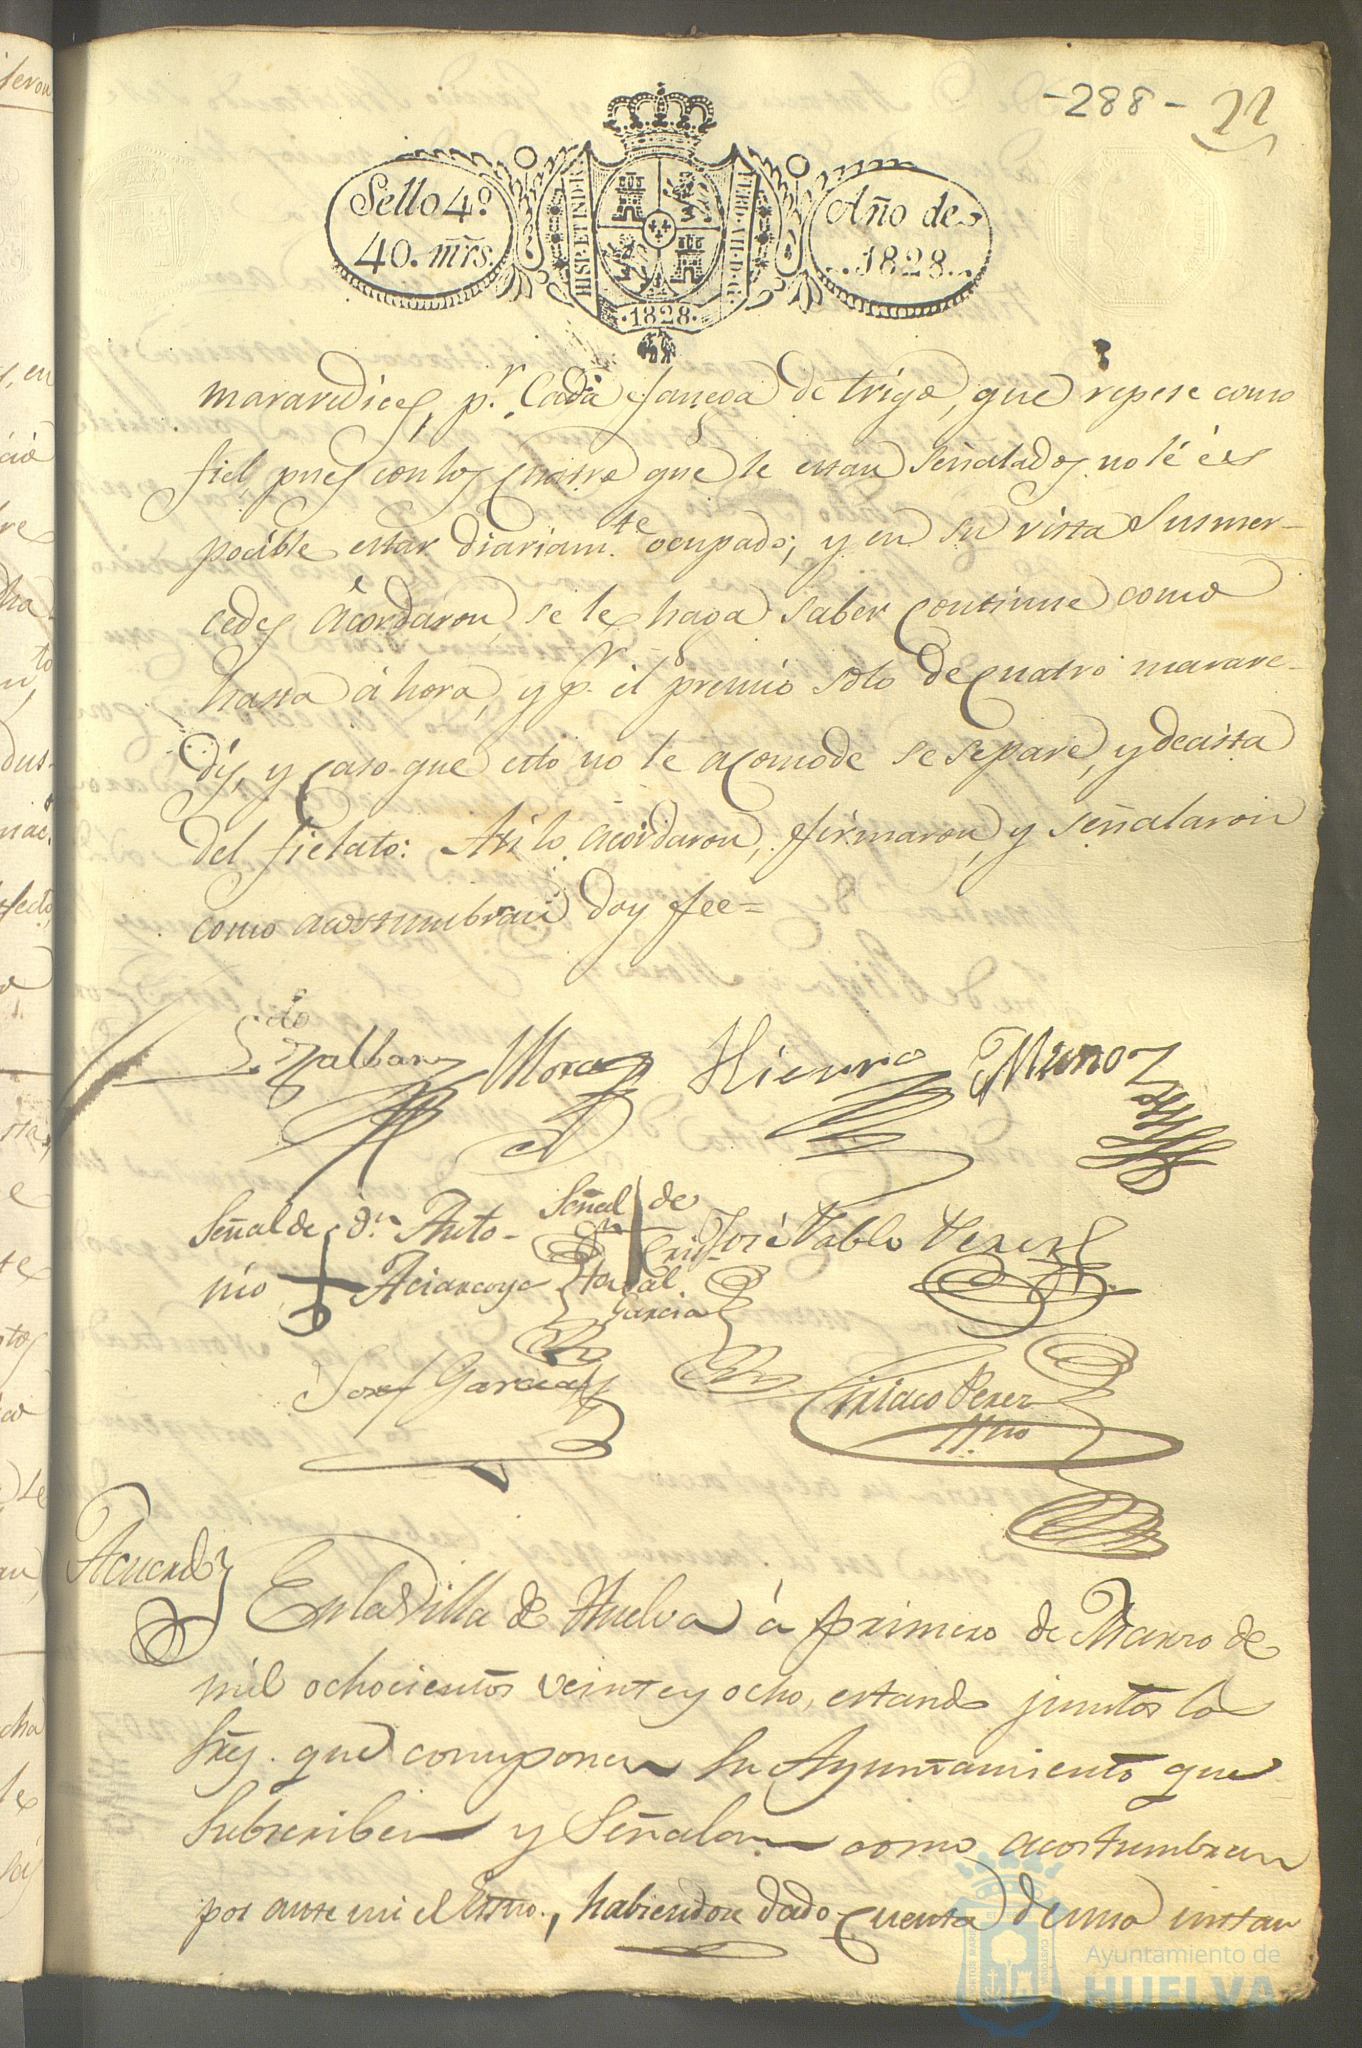 -288- 22
Sello 4º
40. mrs.
HISP. ET IND. R.
FERD. VII. D. G.
·1828·
Año de
1828.
maravedices, p.r Cada fanega de trigo, que repese como
fiel, pues con los Cuatro que le estan señalados no le és
pocible estar diariam.te ocupado; y en su vista Susmer-
cedes Acordaron, se le haga saber Continue como
hasta áhora, y p.r el premio solo de Cuatro marave-
dis, y Caso que esto no le acomode se separe, y decista
del fielato: Asi lo acordaron, firmaron, y señalaron
como acostumbran doy fee=
Mora Hierro Muñoz
Señal de d.n Anto-
nio + Aciancoya
Señal de
Cris-
toval
Garcia
José Pablo Perez
Josef Garcia
Ciriaco Perez
Acuerdo
En la Villa de Huelva á primero de Marzo de
mil ochocientos veinte y ocho, estando juntos los
Sres. que componen su Ayuntamiento que
Subscriben y Señalan como acostumbran
por ante mi el Essno., habiendose dado Cuenta de una instan
Ayuntamiento de
HUELVA